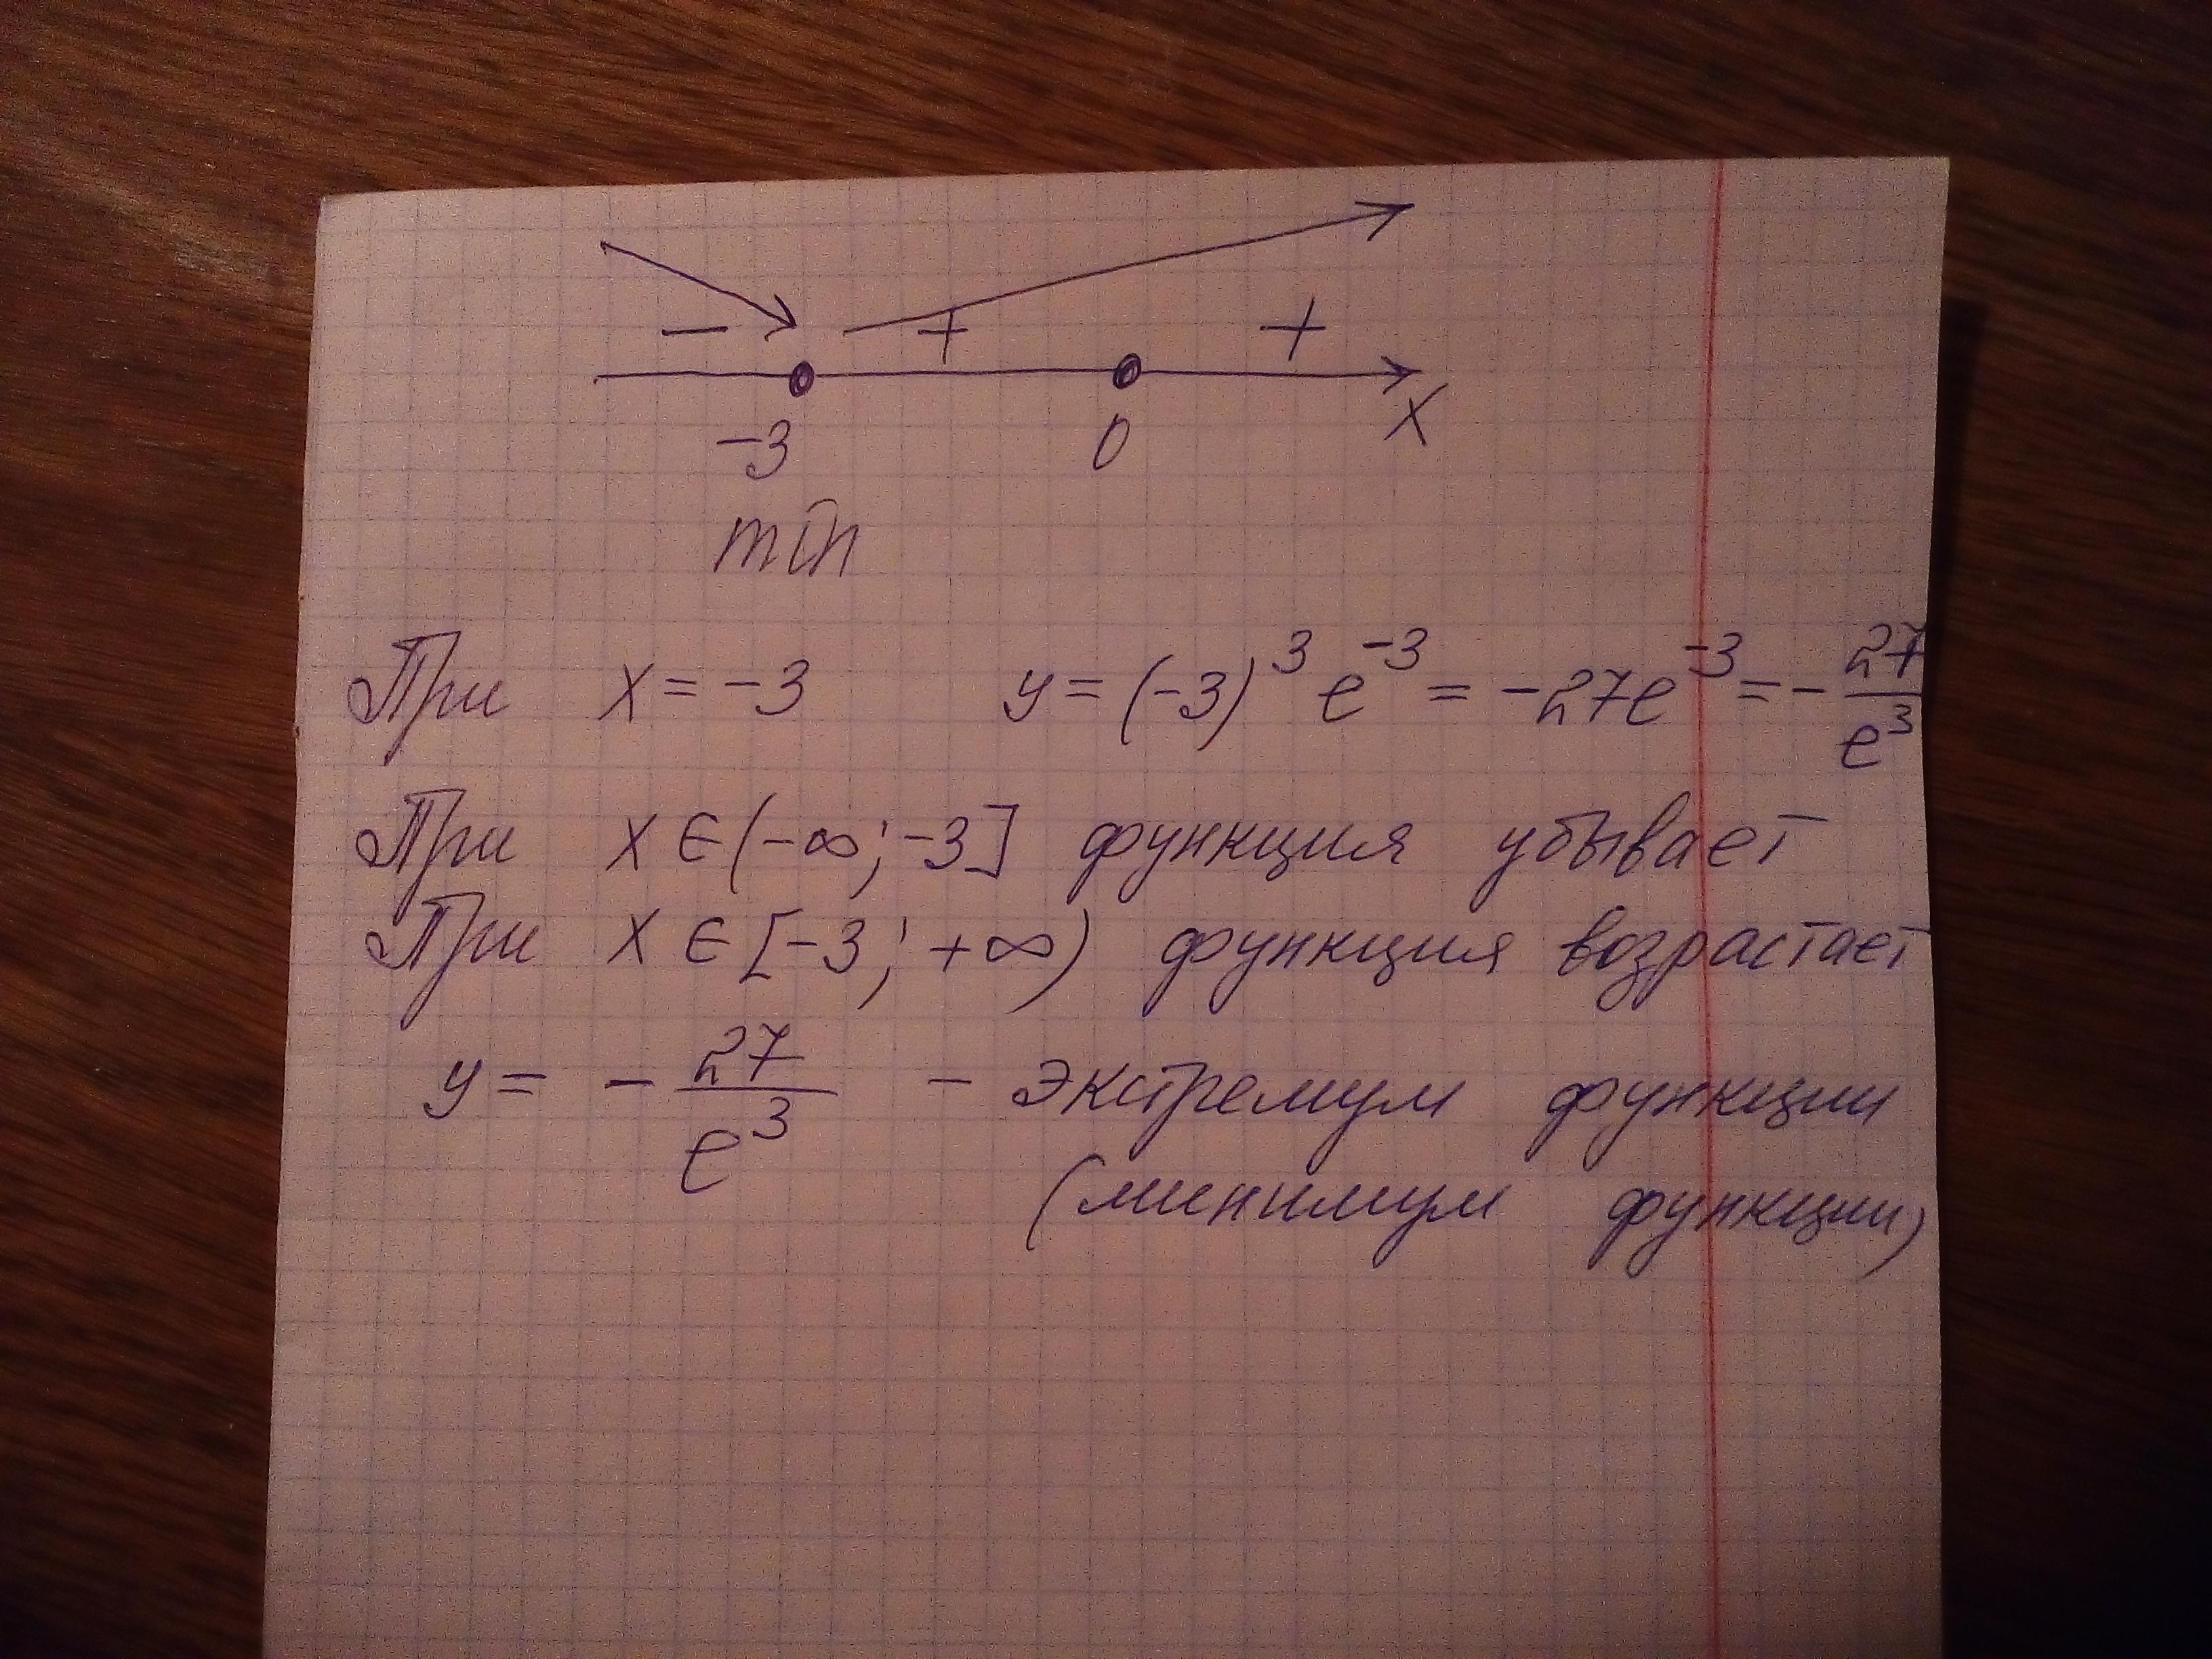 − + +
-3 0 X
min
При x = -3 y = (-3)³ e⁻³ = -27e⁻³ = - 27/e³
При x ∈ (-∞; -3] функция убывает
При x ∈ [-3; +∞) функция возрастает
y = - 27/e³ - экстремум функции
(минимум функции)